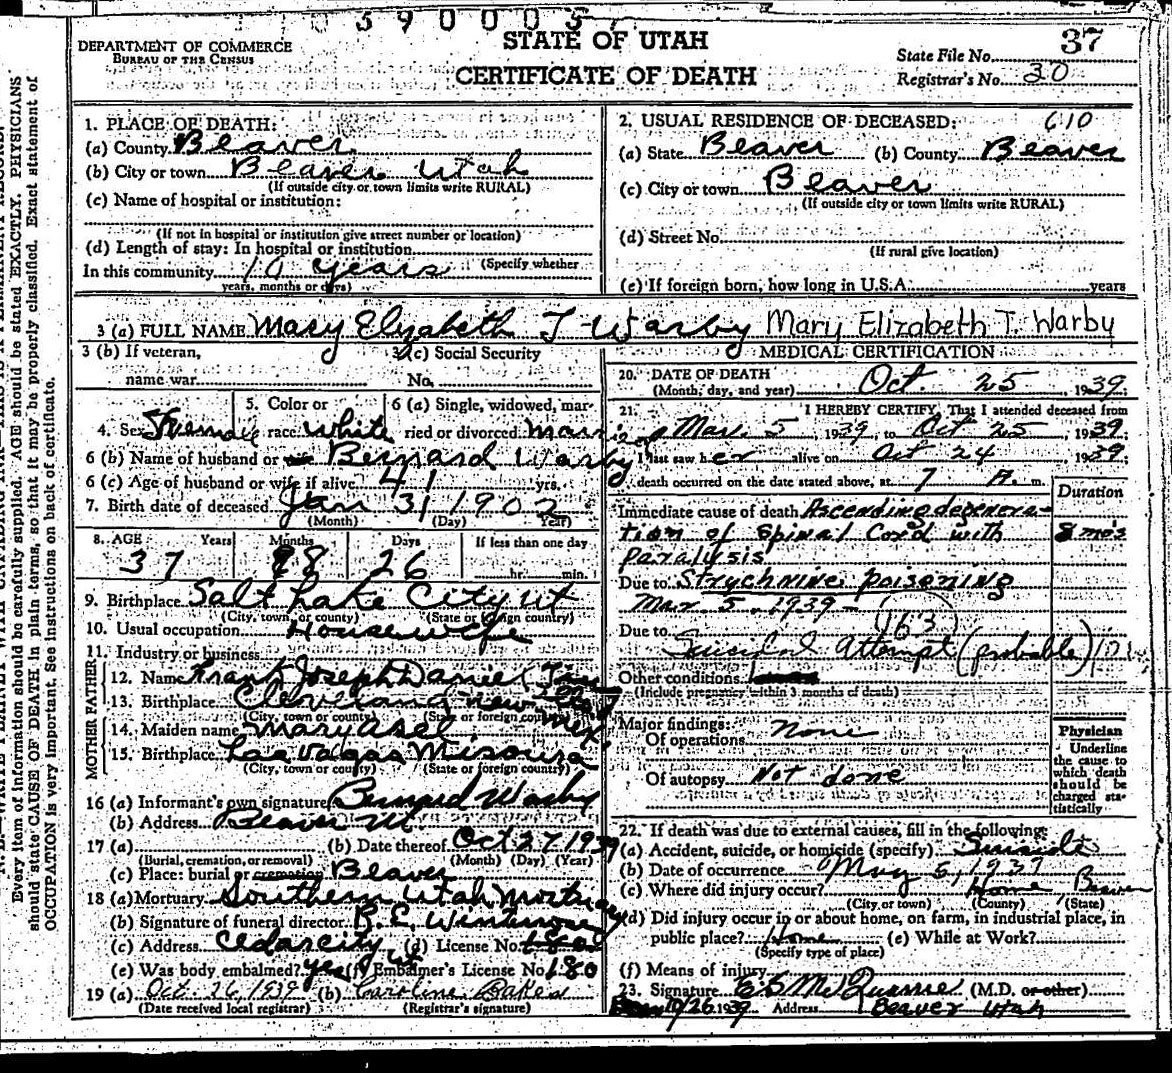 390005
DEPARTMENT OF COMMERCE
BUREAU OF THE CENSUS
STATE OF UTAH
CERTIFICATE OF DEATH
State File No. 37
Registrar's No. 30
Every item of information should be carefully supplied. AGE should be stated EXACTLY. PHYSICIANS
should state CAUSE OF DEATH in plain terms, so that it may be properly classified. Exact statement of
OCCUPATION is very important. See instructions on back of certificate.
1. PLACE OF DEATH:
(a) County Beaver
(b) City or town Beaver Utah
(If outside city or town limits write RURAL)
(c) Name of hospital or institution:
(If not in hospital or institution give street number or location)
(d) Length of stay: In hospital or institution
(Specify whether
In this community 10 years
years, months or days)
2. USUAL RESIDENCE OF DECEASED: 610
(a) State Beaver (b) County Beaver
(c) City or town Beaver
(If outside city or town limits write RURAL)
(d) Street No.
(If rural give location)
(e) If foreign born, how long in U.S.A. years
3 (a) FULL NAME Mary Elizabeth T Warby Mary Elizabeth T. Warby
3 (b) If veteran,
name war
3 (c) Social Security
No.
4. Sex Female
5. Color or
race white
6 (a) Single, widowed, mar-
ried or divorced married
6 (b) Name of husband or Bernard Warby
6 (c) Age of husband or wife if alive 41 yrs.
7. Birth date of deceased Jan 31 1902
(Month) (Day) Year)
8. AGE Years Months Days If less than one day
37 8 26 hr. min.
9. Birthplace Salt Lake City Ut
(City, town, or county) (State or foreign country)
10. Usual occupation Housewife
11. Industry or business
FATHER
12. Name Frank Joseph Daniel
13. Birthplace Cleveland New
(City, town or county) (State or foreign country)
MOTHER
14. Maiden name Mary Asel
15. Birthplace Las Vagas Misoura
(City, town or county) (State or foreign country)
16 (a) Informant's own signature Bernard Warby
(b) Address Beaver Ut
17 (a) (b) Date thereof Oct 27 1939
(Burial, cremation, or removal) (Month) (Day) (Year)
(c) Place: burial or cremation Beaver
18 (a) Mortuary Southern Utah Mortuary
(b) Signature of funeral director
(c) Address Cedar city Ut (d) License No.
(e) Was body embalmed? yes (f) Embalmer's License No. 180
19 (a) Oct. 26, 1939 (b) Caroline Baker
(Date received local registrar) (Registrar's signature)
MEDICAL CERTIFICATION
20. DATE OF DEATH
(Month, day, and year) Oct. 25 1939
21. I HEREBY CERTIFY, That I attended deceased from
Mar. 5, 1939, to Oct 25, 1939;
I last saw her alive on Oct 24 1939;
death occurred on the date stated above, at 7 A. m.
Duration
Immediate cause of death Ascending degenera-
tion of Spinal Cord with 8 mo's
paralysis
Due to Strychnine poisoning
Mar 5, 1939 -
Due to 163
Suicidal Attempt (probable)
Other conditions
(Include pregnancy within 3 months of death)
Major findings:
Of operations None
Of autopsy Not done
Physician
Underline
the cause to
which death
should be
charged sta-
tistically
22. If death was due to external causes, fill in the following:
(a) Accident, suicide, or homicide (specify) Suicide
(b) Date of occurrence May 5, 1939
(c) Where did injury occur? Home Beaver
(City or town) (County) (State)
(d) Did injury occur in or about home, on farm, in industrial place, in
public place? Home (e) While at Work?
(Specify type of place)
(f) Means of injury
23. Signature E S McQuarrie (M.D. or other)
10/26 1939 Address Beaver Utah